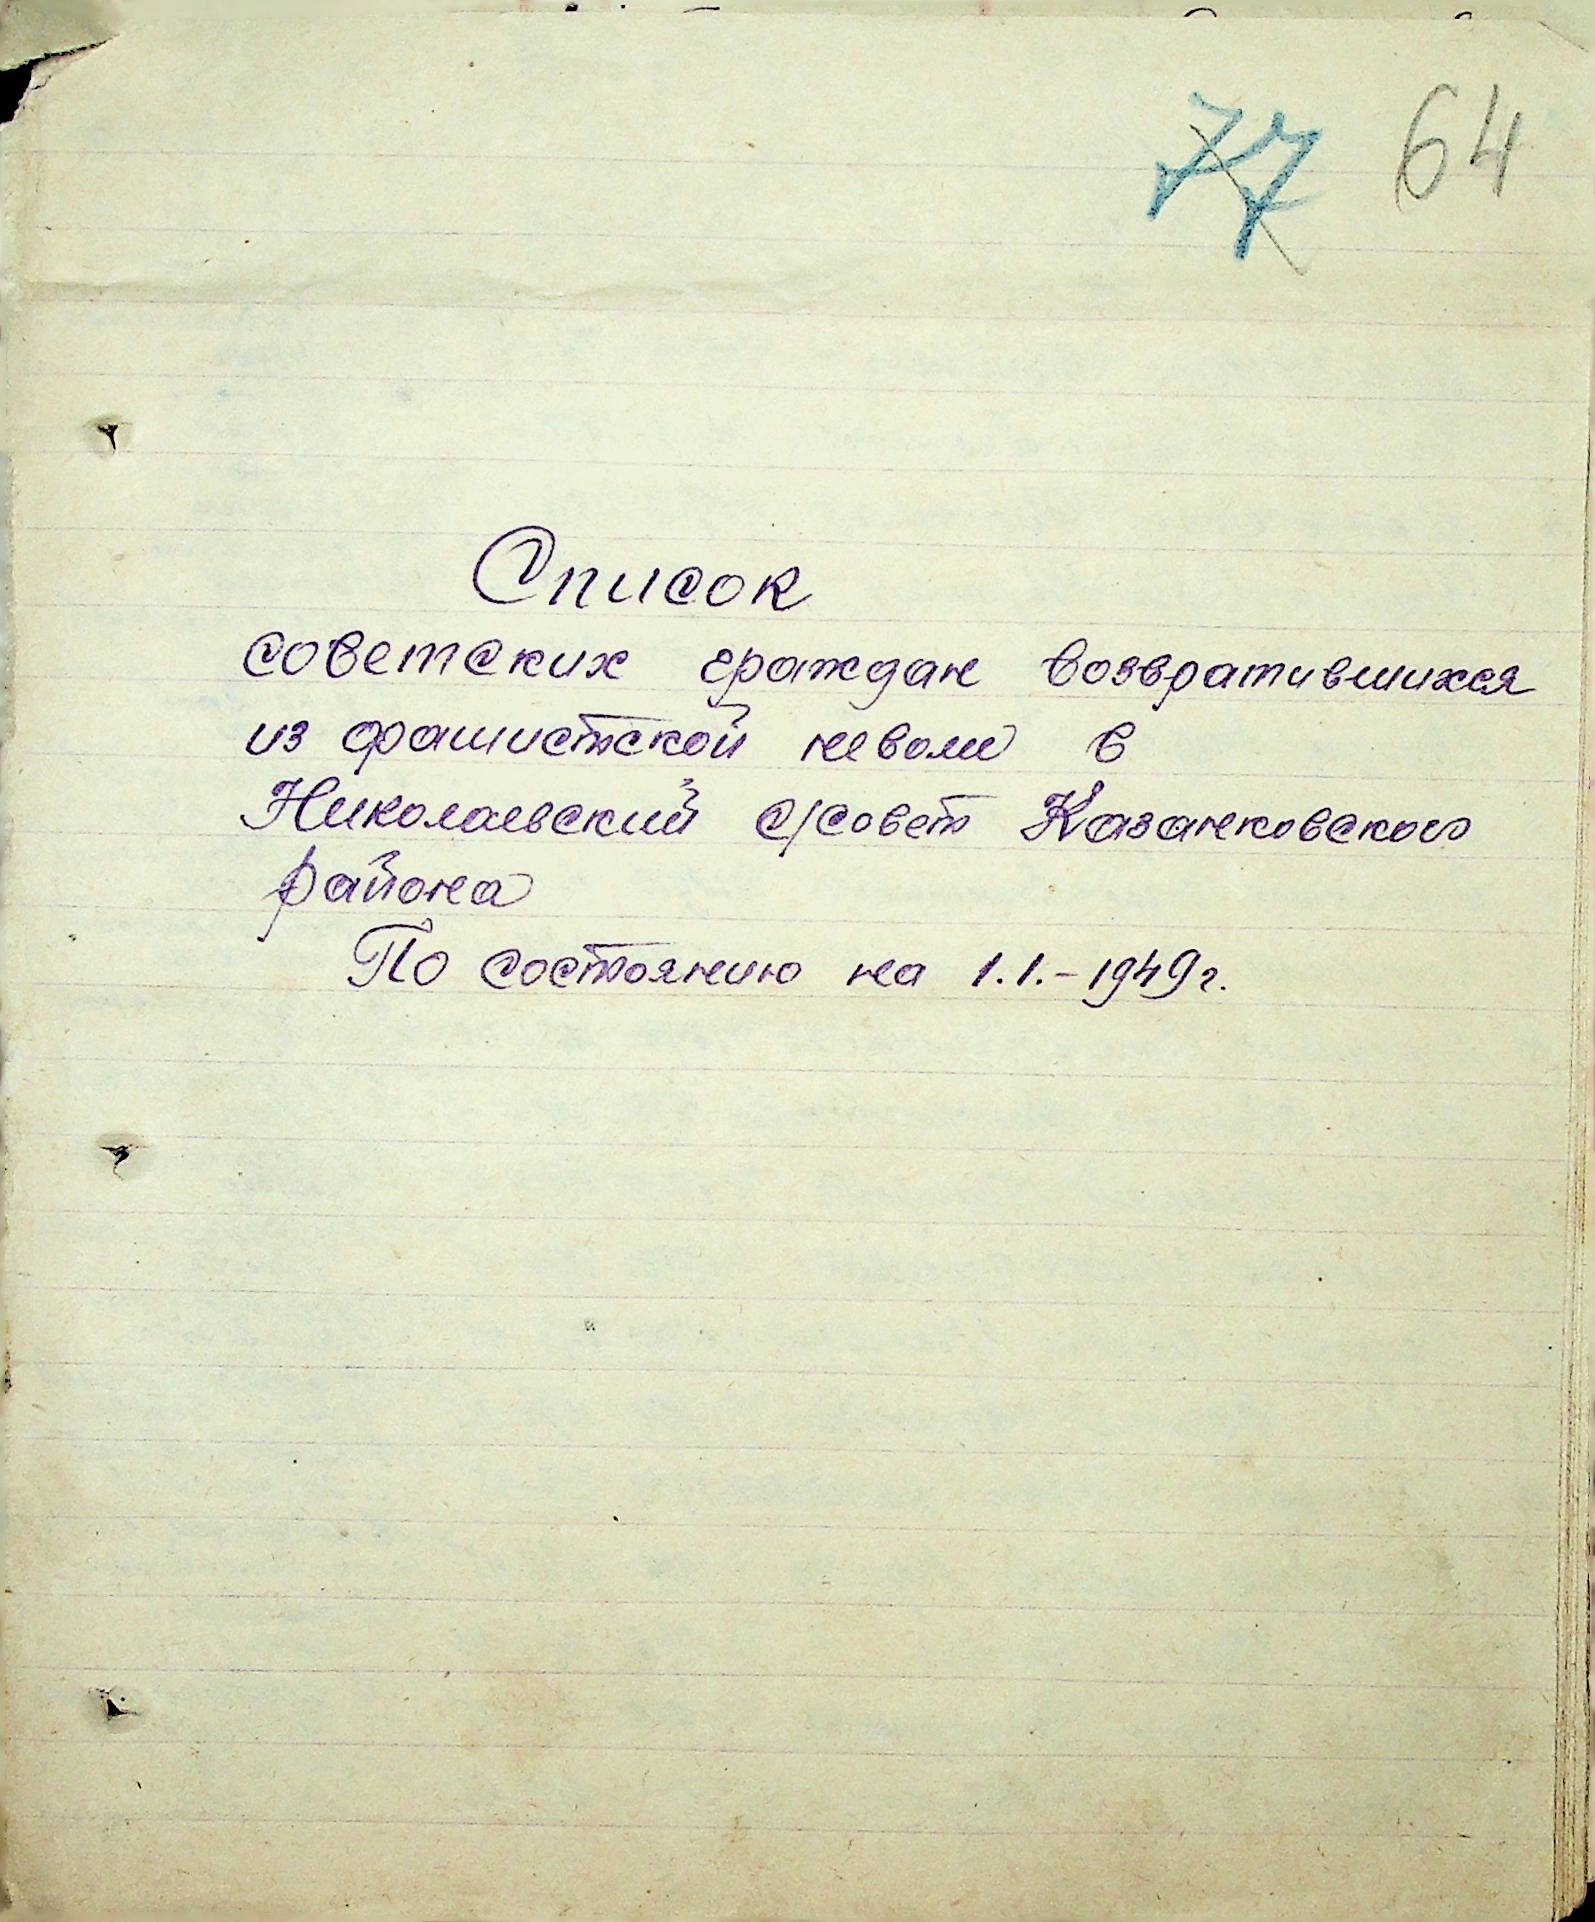 77 64
Список
советских граждан возвратившихся
из фашистской неволи в
Николаевский с/совет Казанковского
района
По состоянию на 1.1.-1949г.